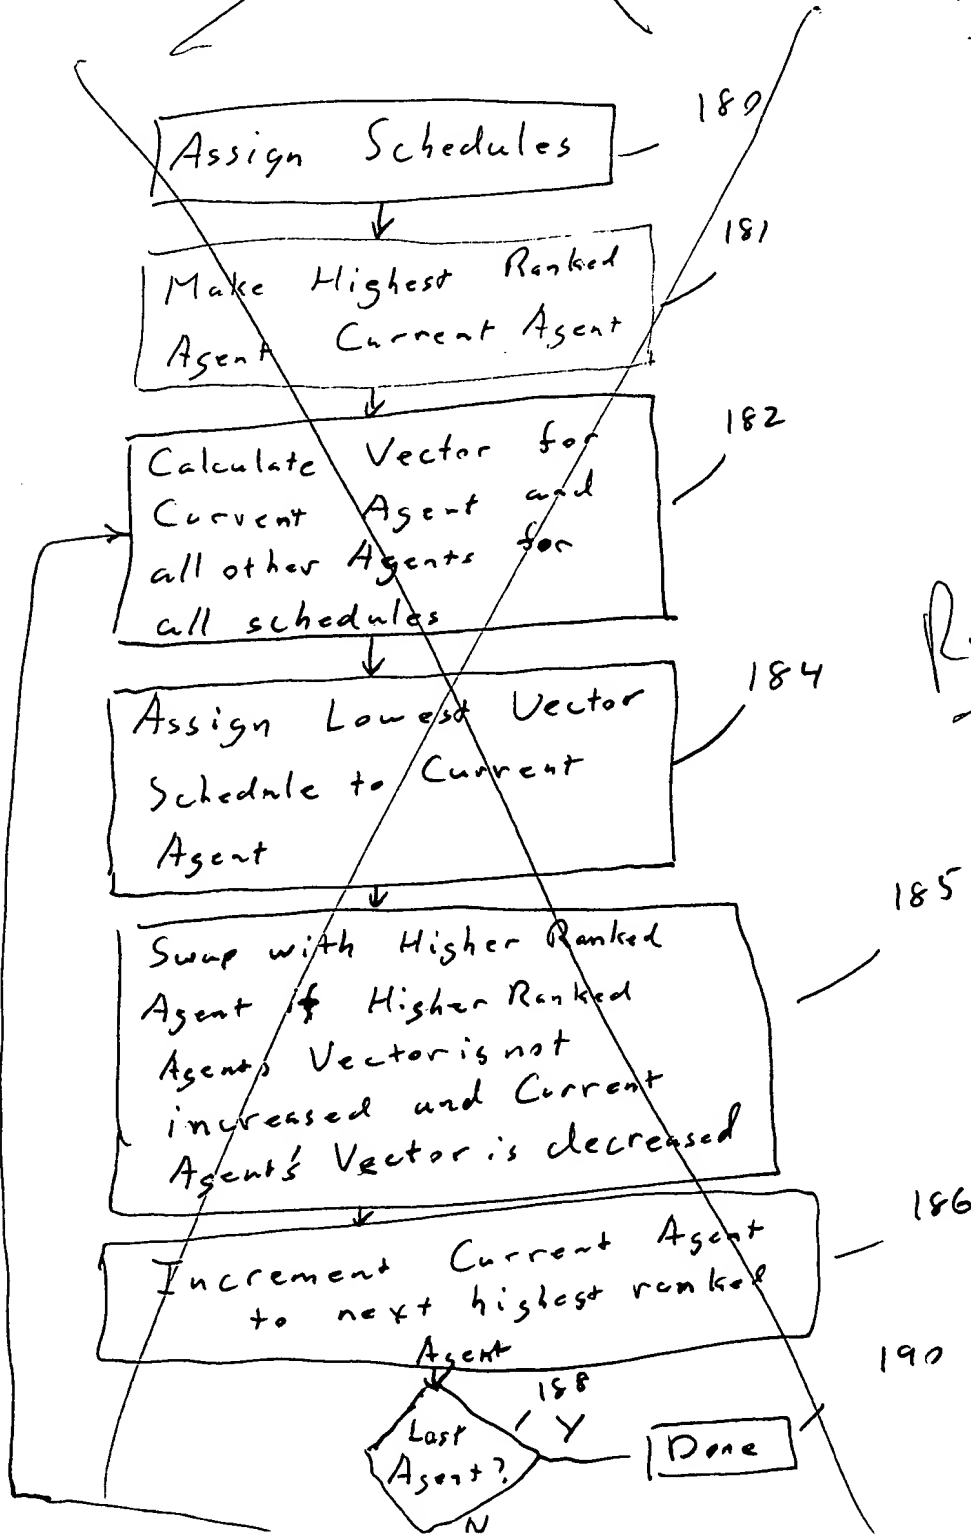 180
Assign Schedules
181
Make Highest Ranked
Agent Current Agent
182
Calculate Vector for
Current Agent and
all other Agents for
all schedules
184
Assign Lowest Vector
Schedule to Current
Agent
185
Swap with Higher Ranked
Agent if Higher Ranked
Agent's Vector is not
increased and Current
Agent's Vector is decreased
186
Increment Current Agent
to next highest ranked
Agent
188
190
Last
Agent?
Y
Done
N